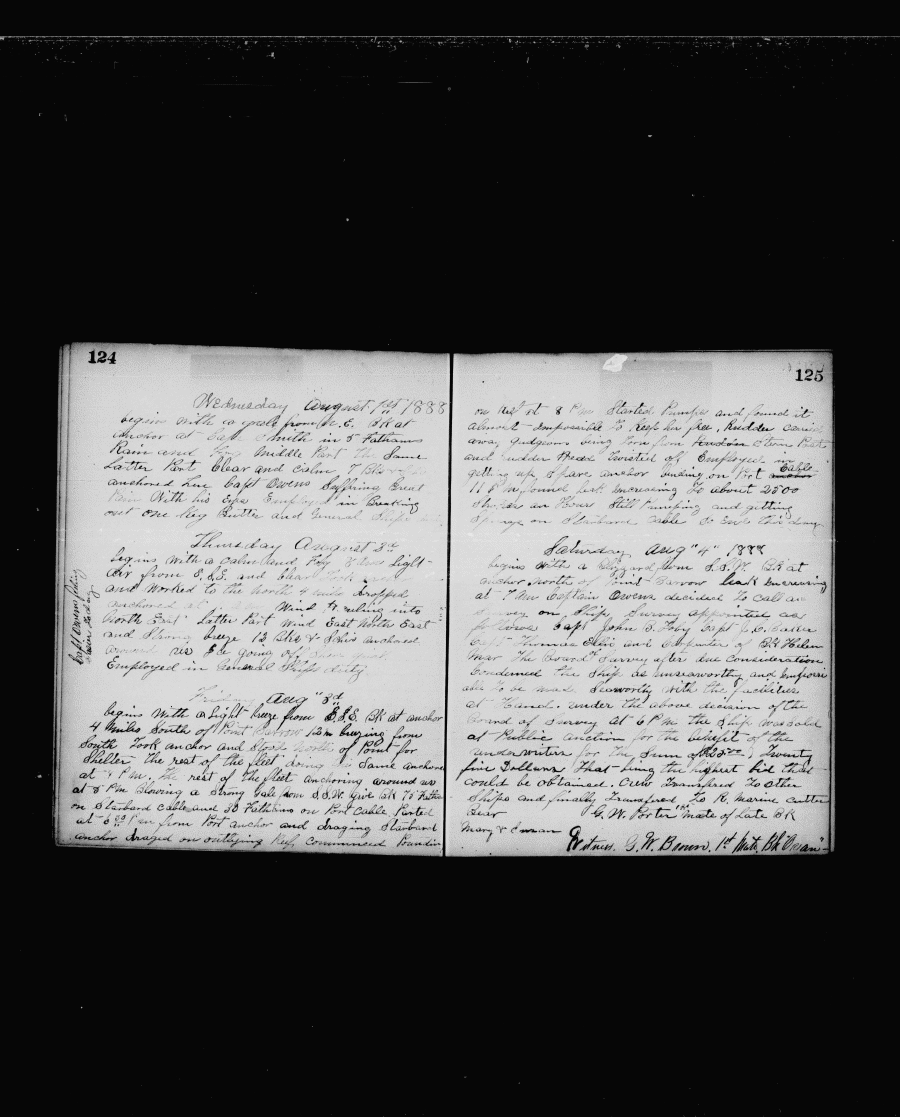 124
Wednesday August 1st 1888
begins with a gale from N.E. Bk at
anchor at Cape Smith in 5 Fathoms
Rain and Fog Middle Part the Same
Latter Part Clear and Calm 7
anchored here Capt Owens Suffering Great
Pain With his Eyes Employed in Breaking
out one Key Butter and General Ships
Thursday August 2d
begins With a calm and Fog Light
air from E.S.E. and Clear Took
and Worked to the North 4 miles dropped
anchored at Wind Hauling into
North East Latter Part Wind East North East
and Strong breeze 12 Bks & Schrs anchored
around us Ice going of
Employed in General Ships duty
Capt Owens
Friday Aug" 3d
begins With a Light breeze from E.S.E. Bk at anchor
4 Miles South of Point Barrow 12 m heaving from
South Took anchor and Stood North of Point for
Shelter The rest of the fleet doing the Same anchored
at P m. The rest of the fleet anchoring around us
at 8 P m Blowing a Strong Gale from S.S.W. give Bk 75 Fathm
on Starbord Cable and 30 Fathams on Port Cable Parted
at 6 P m from Port anchor and draging Starbord
anchor draged on outlying Reef, Commenced Pounding
125
on Reef at 8 P m Started Pumps and found it
almost Impossible To Keep her free, Rudder carried
away gudgeons being Torn from Rudder Stern Post
and Rudder Head Twisted of, Employed in
getting up Spare anchor bending on Port Cable
11 P m found leak increasing To about 2500
Strokes an Hour Still Pumping and getting
Springs on Starbord Cable So Ends this day
Saturday Aug" 4" 1888
begins With a Blizzard from S.S.W. Bk at
anchor North of Point Barrow leak increasing
at 7 Am Captain Owens decided To Call a
Survey on Ship, Survey appointed as
follows Capt John B. Foy Capt J. E. Baker
Capt Thomas Ellis and Carpenter of Bk Helen
Mar The Board of Survey after due Consideration
Condemned the Ship as unseaworthy and Impossi
able To be made Seaworthy With the facilities
at Hand. under the above decision of the
Board of Survey at 6 P m the Ship was sold
at Public auction for the benefit of the
underwriters for the Sum of Twenty
five Dollars That being the highest bid that
could be obtained. Crew Transfered To other
Ships and finally Transfered To R. Marine Cutter
Bear G. W. Porter 1st Mate of Late Bk
Mary & Susan
Witness. G. W. Brown. 1st Mate, Bk "Ocean"